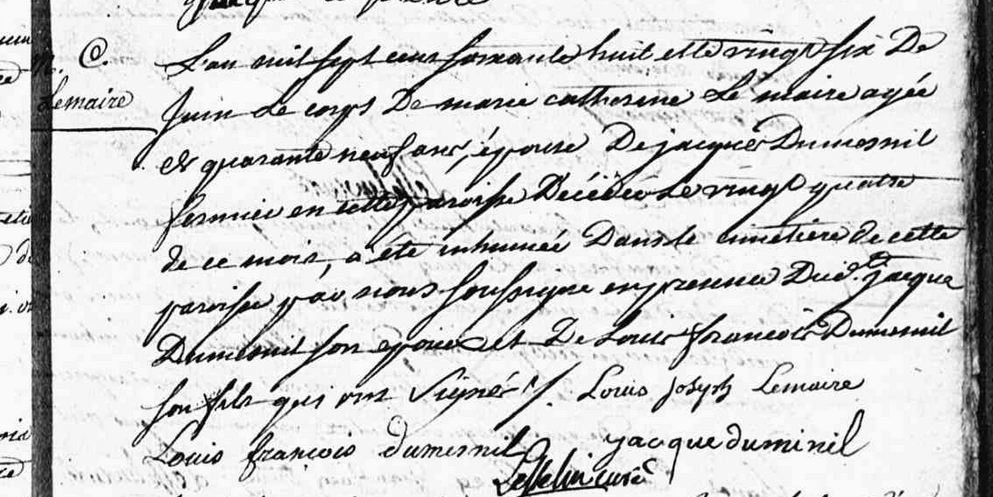 C.
Lemaire
L'an mil sept cens soixante huit et le vingt six De
Juin Le corps De marie catherine Le maire agée
de quarante neuf ans, épouse De jacques Dumesnil
fermier en cette paroisse Décédée Le vingt quatre
de ce mois, a été inhumée Dans le cimetiere de cette
paroisse par nous soussigné en presence Dud. jacque
Dumesnil son epoux et De Louis françois Dumesnil
son fils qui ont signés ./. Louis joseph Lemaire
Louis françois dumesnil jacque duminil
curé